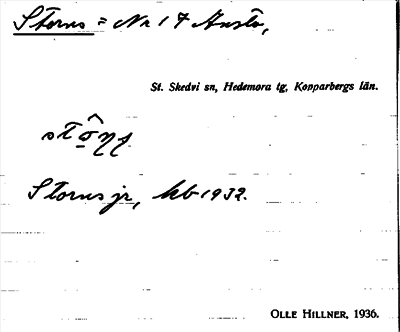 Storns = Nr 17 Ansta,
St. Skedvi sn, Hedemora tg, Kopparbergs län.
Storns jr, kb 1932.
OLLE HILLNER, 1936.